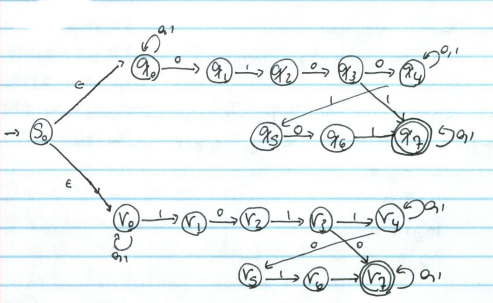 0,1
q0 0 q1 1 q2 0 q3 0 q4 0,1
ε 1 1
S0 q5 0 q6 1 q7 0,1
ε
r0 1 r1 0 r2 1 r3 1 r4 0,1
0,1 0 0
r5 1 r6 r7 0,1